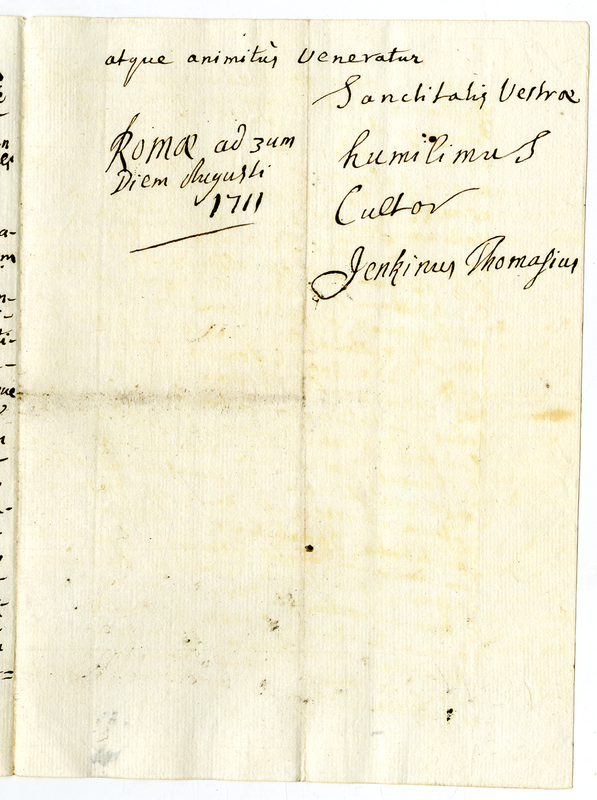 atque animitùs Veneratur
Sanctitatis Vestræ
Romæ ad 3um
Diem Augusti
1711
humilimus
Cultor
Jenkinus Thomasius